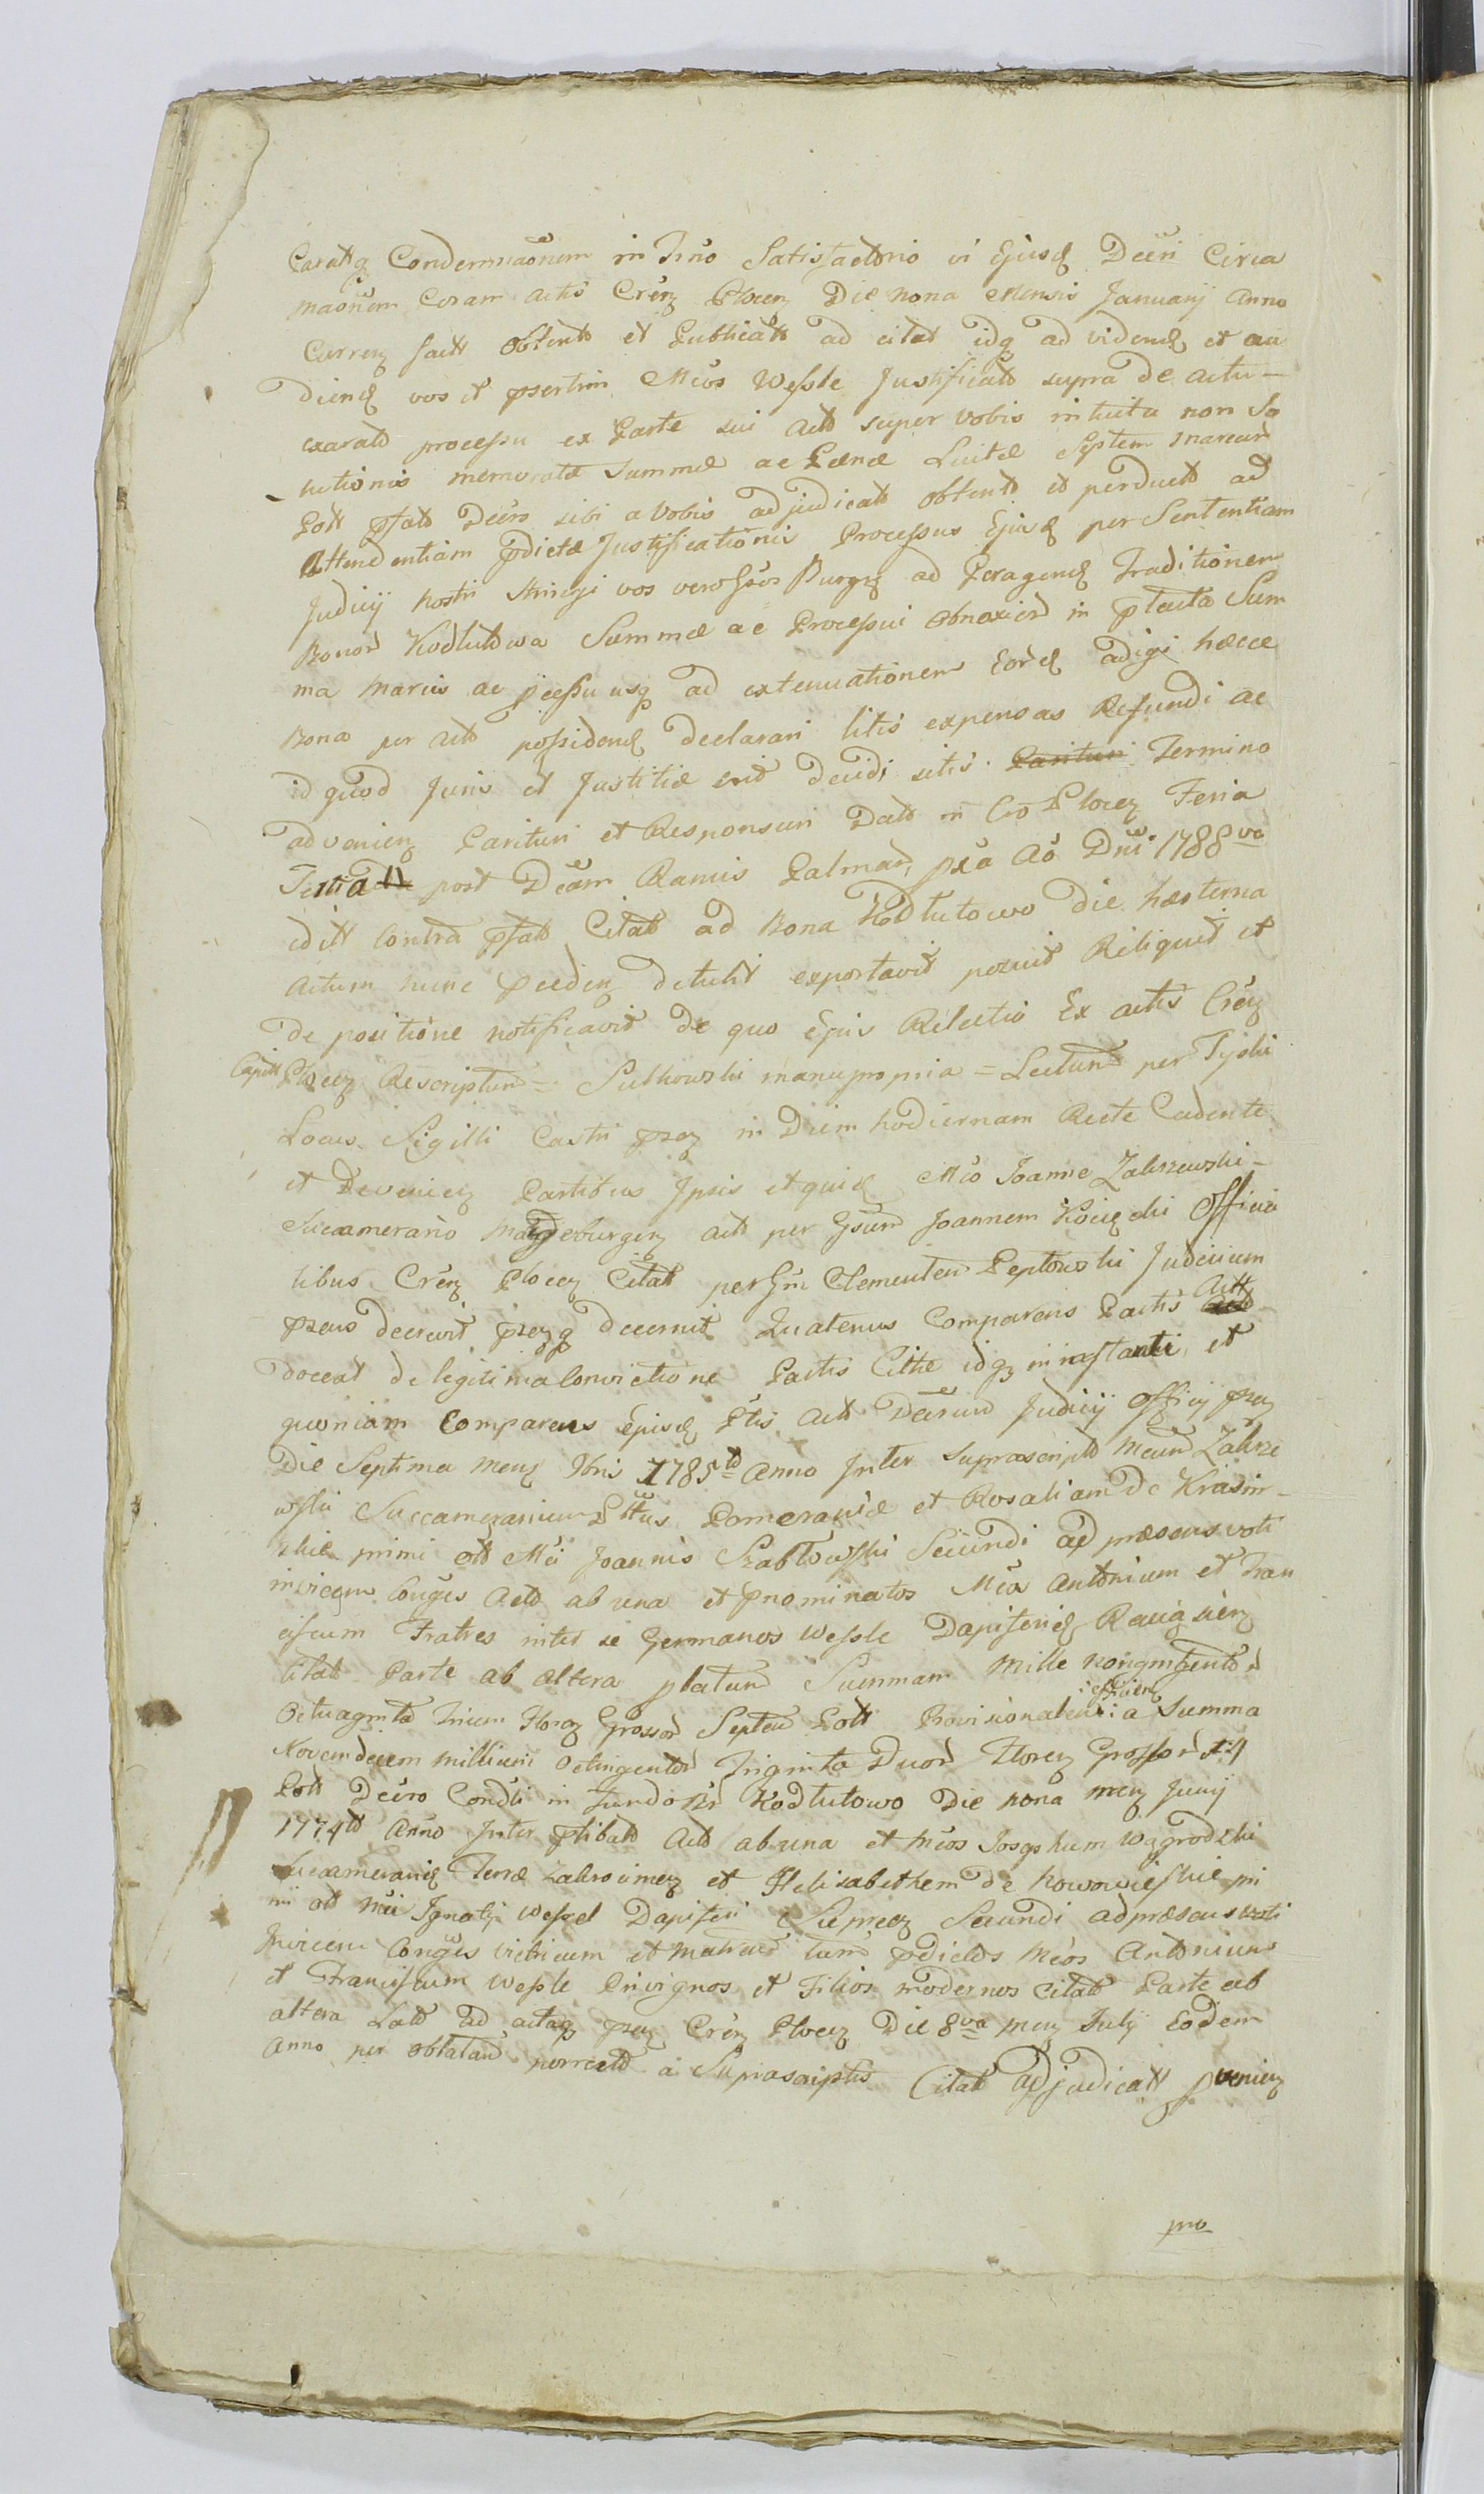 Paratq Condemnaõnem in Trno Satisfactorio vi Ejusd Decri Circa
maõnem Coram actis Crens Plocens Die nona Mensis Januarij Anno
Currens fact Obtent et Publicat ad citat idq ad vidend et au
diend vos et psertim Mcos Wessle Justificatt supra de actu
exarato processu ex Parte sui Act super vobis intuitu non So
lutionis memorata Summæ ac Pænæ Luitæ Septem marcar
Pott pfat Decro sibi a Vobis adjudicatt Obtent et perduct ad
Attendentiam pdictæ Justificationis Processus Ejusd per Sententiam
Judicij nostri stringi vos vero Gsos Burgs ad Peragend Traditionem
Bonor Kodłutowa Summæ ac Processui obnoxior in ptacta Sum
ma maris ac pcessu usq ad extenuationem Eord adigi hæcce
Bona per Act possidend declarari litis expensas Refundi ac
id quod Juris et Justitiæ erit decidi sitis Parituri Termino
adveniens Parituri et Responsuri Datt in Cro Plocens Feria
Tertia post Dcam Ramis Palmar pxa Ao Dni 1788va
id itt Contra pfatt Citatt ad Bona Kodłutowo die hesterna
Actum nunc pcedens detulit exportavit posuit Reliquit et
de positione notificavit de quo Ejus Relatio Ex actis Crens
Capitt Plocens Rescriptum = Sutkowski manu propria = Lectum per Tyski
Locus Sigilli Castri psens in Diem hodiernam Recte Cadente
et Deveniens Partibus Ipsis et quid Mco Joanne Zakrzewski
Succamerario Magdeburgens Act per Gsum Joannem Kocięcki Officia
libus Crens Plocens Citatt per Gm Clementem Peptowski Judicium
psens decrevit psensq decernit Quatenus Comparens Partis Actt
doceat de legitima Convictione Partis Citte idq in instanti, et
quoniam Comparens Ejusd Ptis Act Decrum Judicij Officij psens
Die Septima mens Xbris 1785to Anno Inter Suprascript Mcum Zakrze
wski Succamerarium Pttus Pomeraniæ et Rosaliam de Krasin
skie primi ott Mci Joannis Szabłowski Secundi ad præsens voti
invicem Conges Act ab una et pnominatos Mcos Antonium et Fran
ciscum Fratres inter se Germanos Wessle Dapiferid Raciążiens
Citatt Parte ab altera platum Summam Mille nongingentor
Octuaginta Trium Florens Grossor Septem Pott Provisionalem efficiens a Summa
Novemdecem millium Octingentor Triginta Duor Florens Grossor 24
Pott Decro Condti in Fundo Br Kodłutowo Die nona mens Junij
1774to Anno Inter plibatt Act ab una et Mcos Josephum Wągrodzki
Succamerarid Terræ Zakrocimens et Helisabethem de Nowowieskie pri
mi ott Mci Ignatij Wessel Dapiferi Sieprecens Secundi ad præsens voti
Invicem Conges vitricum et matrem tum pdictos Mcos Antonium
et Franciscum Wessle Privignos et Filios modernos Citatt Parte ab
altera Latt ad actaq psens Crens Plocens Die 8va mens Julij Eodem
Anno per Oblatam porrectt a Suprascriptis Citatt adjudicatt pveniens
pro